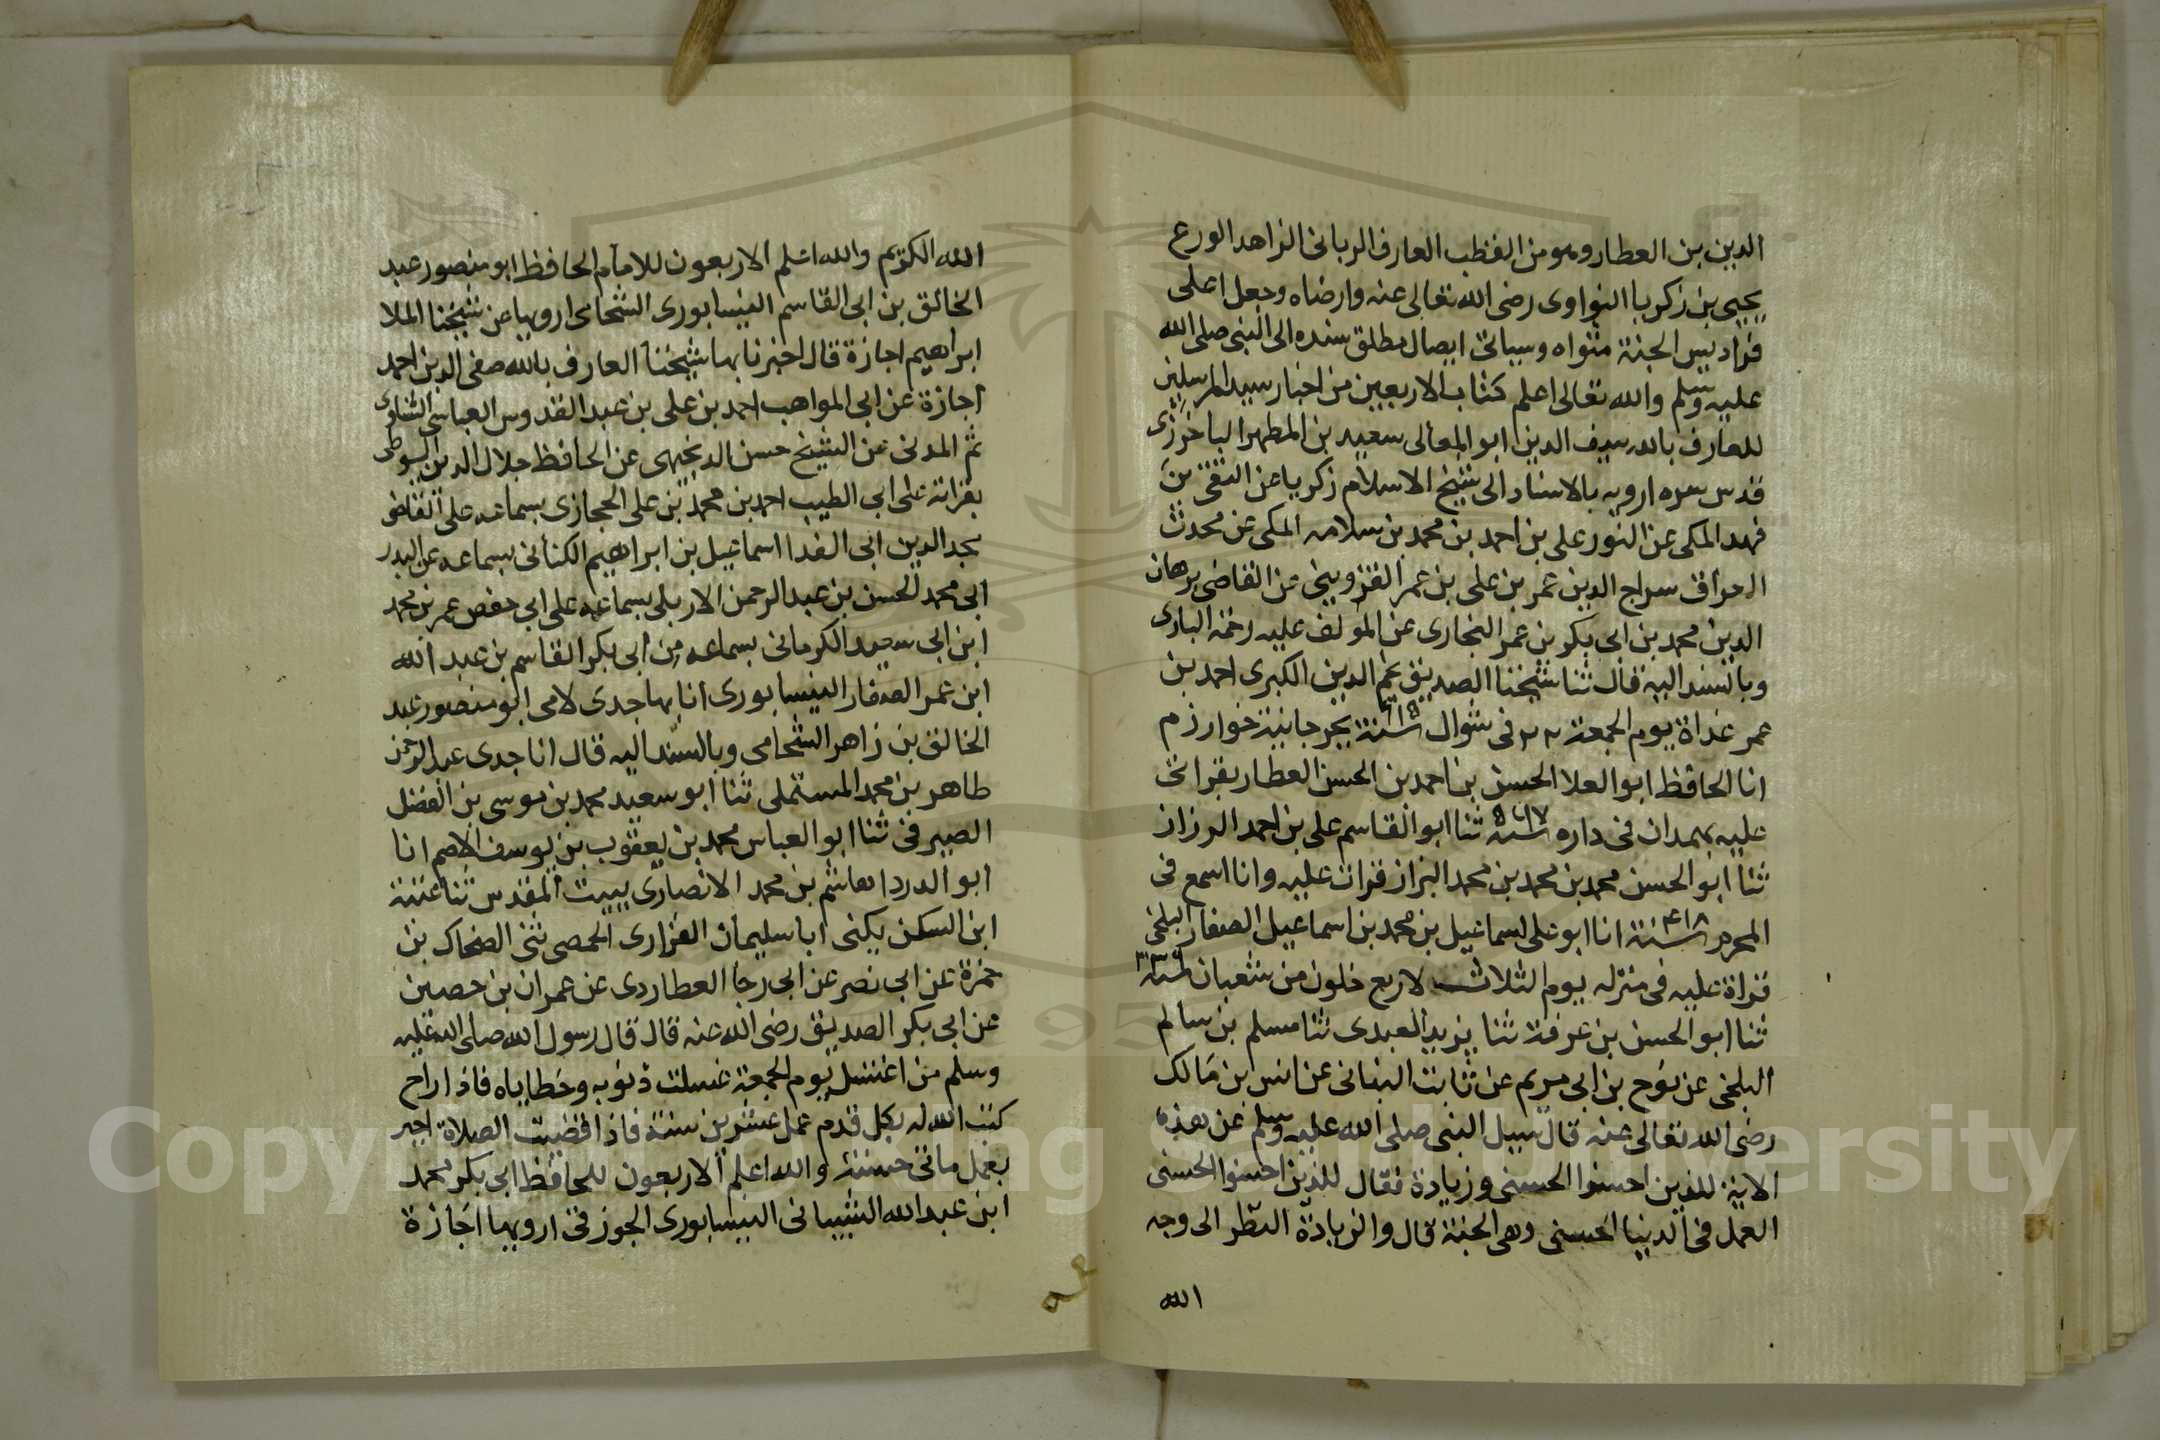 الدين بن العطار وهو من القطب العارف الرباني الزاهد الورع
يحيى بن زكريا النواوى رضى الله تعالى عنه وارضاه وجعل اعلى
فراديس الجنة مثواه وسياتى ايصال مطلق سنده الى النبى صلى الله
عليه وسلم والله تعالى اعلم كتاب الاربعين من اخبار سيد المرسلين
للعارف بالله سيف الدين ابو المعالى سعيد بن المطهر الباخرزى
قدس سره ارويه بالاسناد الى شيخ الاسلام زكريا عن التقى بن
فهد المكى عن النور على بن احمد بن محمد بن سلامه المكى عن محدث
العراق سراج الدين عمر بن على بن عمر القزوينى عن القاضى برهان
الدين محمد بن ابى بكر بن عمر البخارى عن المولف عليه رحمة البارى
وبالسند اليه قال ثنا شيخنا الصديق نجم الدين الكبرى احمد بن
عمر غداة يوم الجمعة ٢٢ فى شوال سنة ٦١٥ بجرجانية خوارزم
انا الحافظ ابو العلا الحسن بن احمد بن الحسن العطار بقراتى
عليه بهمدان فى داره سنة ٥٦٧ ثنا ابو القاسم على بن احمد الرزاز
ثنا ابو الحسن محمد بن محمد بن محمد البزاز قرات عليه وانا اسمع فى
المحرم سنة ٤١٨ انا ابو على اسماعيل بن محمد بن اسماعيل الصفار البلخى
قراة عليه فى منزله يوم الثلاث لاربع خلون من شعبان سنة ٣٣٩
ثنا ابو الحسن بن عرفة ثنا يزيد العبدى ثنا مسلم بن سالم
البلخى عن نوح بن ابى مريم عن ثابت البنانى عن انس بن مالك
رضى الله تعالى عنه قال سيل النبى صلى الله عليه وسلم عن هذه
الاية للذين احسنوا الحسنى وزيادة فقال للذين احسنوا الحسنى
العمل فى الدنيا الحسنى وهى الجنة قال والزيادة النظر الى وجه
الله
الله الكريم والله اعلم الاربعون للامام الحافظ ابو منصور عبد
الخالق بن ابى القاسم النيسابورى الشحامى ارويها عن شيخنا الملا
ابراهيم اجازة قال اخبرنا بها شيخنا العارف بالله صفى الدين احمد
اجازة عن ابى المواهب احمد بن على بن عبد القدوس العباسى الشناوى
ثم المدنى عن الشيخ حسن الدنجيهى عن الحافظ جلال الدين السيوطى
بقراته على ابى الطيب احمد بن محمد بن على الحجازى بسماعه على القاضى
مجد الدين ابى الفدا اسماعيل بن ابراهيم الكنانى بسماعه عن البدر
ابى محمد الحسن بن عبد الرحمن الاربلى بسماعه على ابى حفص عمر بن محمد
ابن ابى سعيد الكرمانى بسماعه من ابى بكر القاسم بن عبد الله
ابن عمر الصفار النيسابورى انا بها جدى لامى ابو منصور عبد
الخالق بن زاهر الشحامى وبالسند اليه قال انا جدى عبد الرحمن
طاهر بن محمد المستملى ثنا ابو سعيد محمد بن موسى بن الفضل
الصيرفى ثنا ابو العباس محمد بن يعقوب بن يوسف الاصم انا
ابو الدردا هاشم بن محمد الانصارى ببيت المقدس ثنا عتبة
ابن السكن يكنى ابا سليمان الفزارى الحمصى ثنى الضحاك بن
حمزة عن ابى نصر عن ابى رجا العطاردى عن عمران بن حصين
عن ابى بكر الصديق رضى الله عنه قال قال رسول الله صلى الله عليه
وسلم من اغتسل يوم الجمعة غسلت ذنوبه وخطاياه فاذا راح
كتب الله له بكل قدم عمل عشرين سنة فاذا اقضيت الصلاة اجير
بعمل مائتى حسنة والله اعلم الاربعون للحافظ ابى بكر محمد
ابن عبد الله الشيبانى النيسابورى الجوزقى ارويها اجازة
Copyright © King Saud University